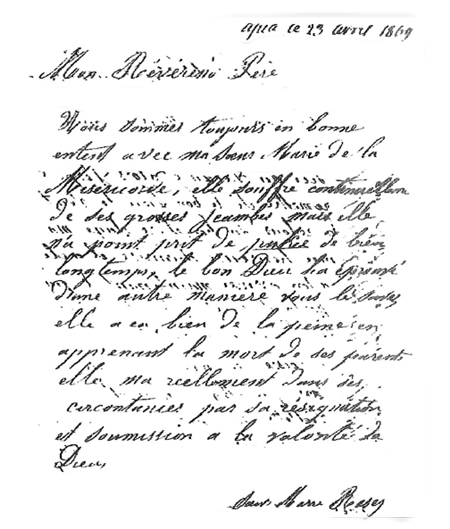 apia ce 23 avril 1869
Mon Révérend Père
Nous sommes toujours en bonne
entent avec ma Sœur Marie de la
Misericorde, elle souffre continuellem
de ses grosses jeambes mais elle
n'a point prit de de bien
longtemps, le bon Dieu l'a éprouvé
d'une autre maniere vous le
elle a eu bien de la peine en
apprenant la mort de ses parents
elle ma reellement dans ses
circontances par sa résignation
et soumission a la volonté de
Dieu
Sœur Marie Rose